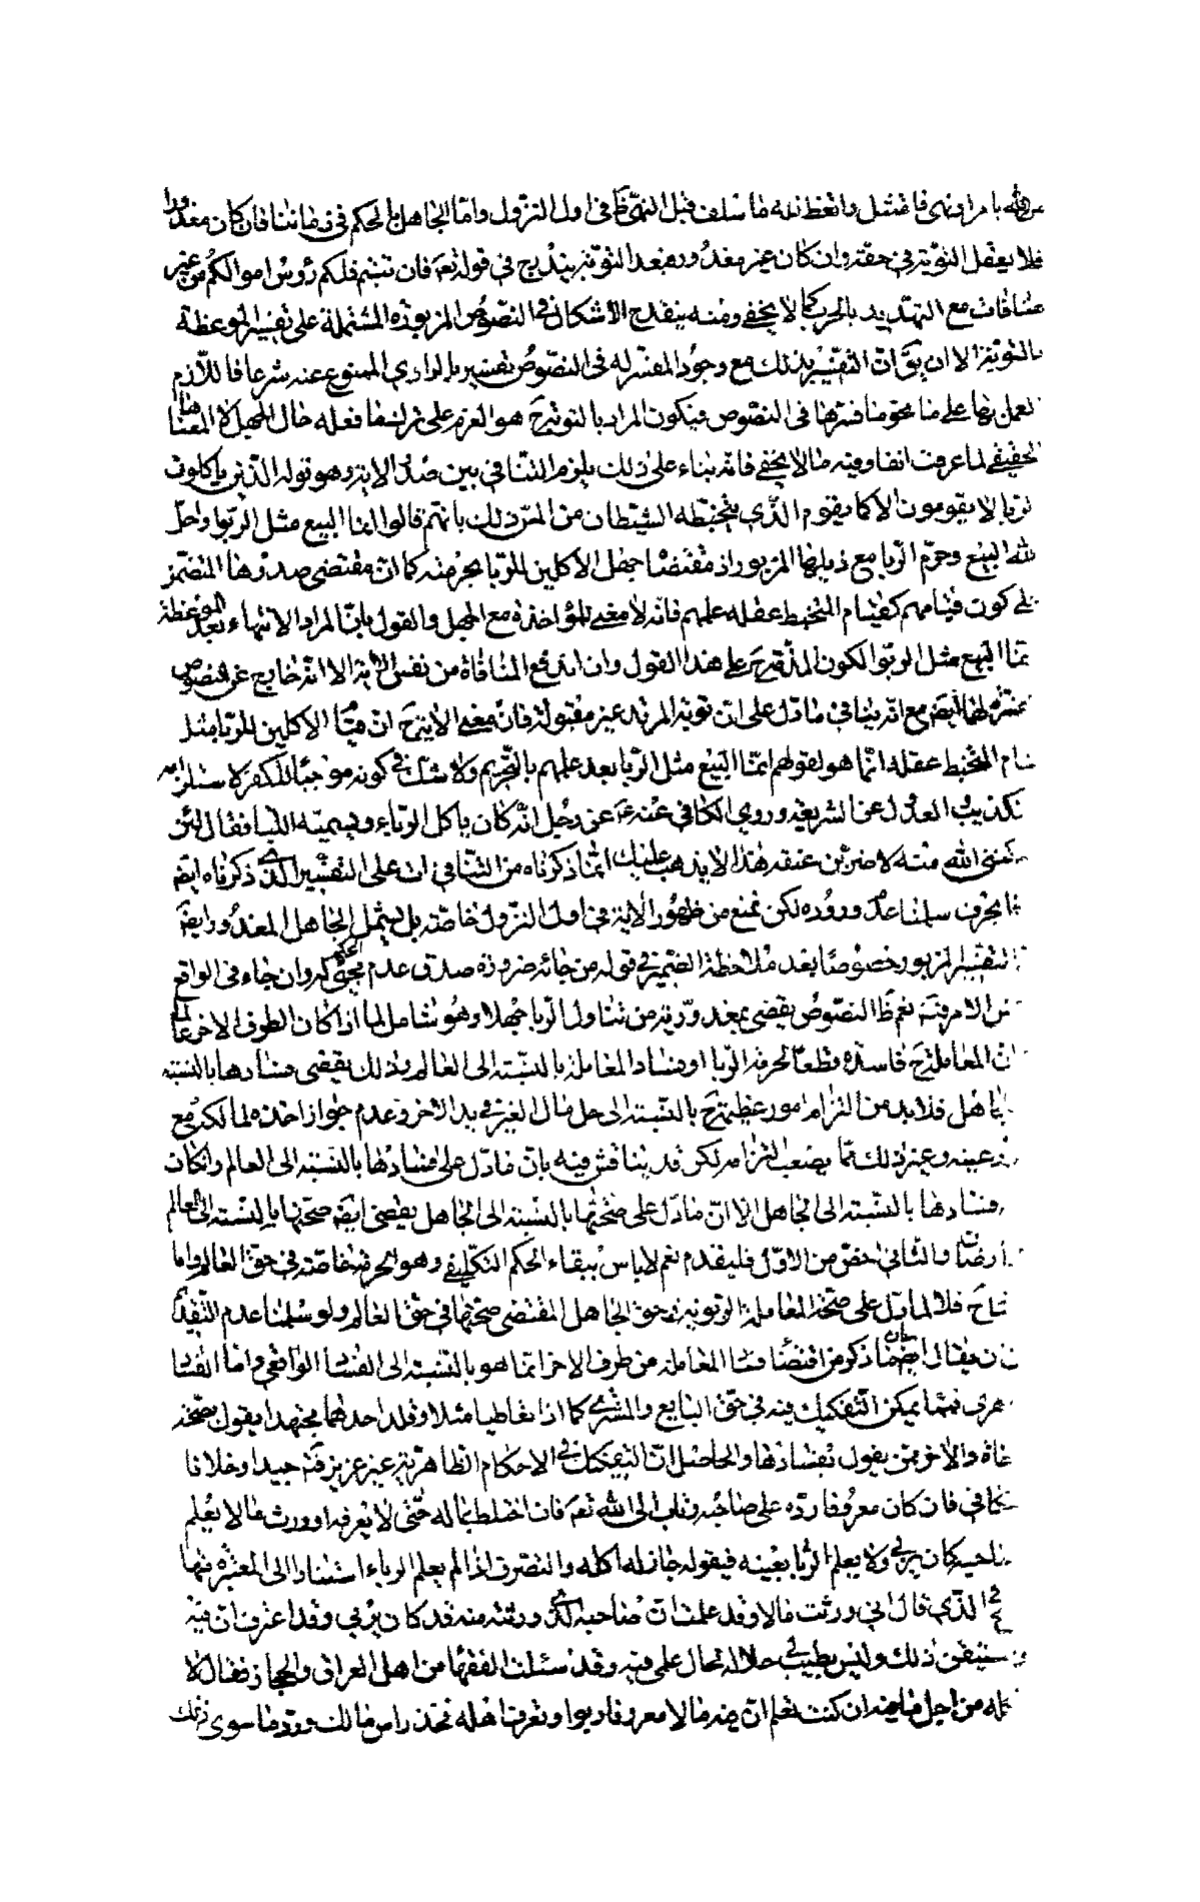 من الله بامر او نهى فامتثل واتعظ فله ما سلف قبل النهى كما فى اول النزول واما الجاهل بالحكم فى زماننا فان كان معذورا
فلا يعقل التوبة فى حقه وان كان غير معذور فبعد التوبة يندرج فى قوله تعم فان تبتم فلكم رؤس اموالكم من غير
منافات مع التهديد بالحرب كما لا يخفى ومنه ينقدح الاشكال فى النصوص المزبورة المشتملة على تفسير الموعظة
بالتوبة الا ان يق ان التفسير بذلك مع وجود المفسر له فى النصوص تفسير بالراى الممنوع عنه شرعا فاللازم
العمل بها على ما نحو ما فسرها فى النصوص فيكون المراد بالتوبة ح هو العزم على ترك ما فعله حال الجهل لا المعنى
الحقيقى لما عرفت انفا وفيه ما لا يخفى فانه بناء على ذلك يلزم التنافى بين صدر الاية وهو قوله الذين ياكلون
الربا لا يقومون الا كما يقوم الذى يتخبطه الشيطان من المس ذلك بانهم قالوا انما البيع مثل الربوا واحل
الله البيع وحرم الربا مع ذيلها المزبور اذ مقتضا جهل الاكلين للربا بحرمته كما ان مقتضى صدرها المتضمن
لكون قيامهم كقيام المتخبط عقله علمهم فانه لا معنى للمؤاخذة مع الجهل والقول بان المراد الانتهاء بعد الموعظة
انما البيع مثل الربوا لكون المذ ح على هذا القول وان اندفع المنافاة من نفس الاية الا انه خارج عن النصوص
المفسرة لها ايضا مع انه ينافى ما دل على ان توبة المرتد غير مقبولة فان معنى الاية ح ان قيام الاكلين للربا مثل
قيام المتخبط عقله انما هو لقولهم انما البيع مثل الربا بعد علمهم بالتحريم ولا شك فى كونه موجبا للكفر لاستلزامه
تكذيب العدول عن الشريعة وروى الكافى عنه ع عن رجل انه كان ياكل الرباء ويسميه اللبا فقال لئن
امكننى الله منه لاضربن عنقه هذا لا يذهب عليك انما ذكرناه من التنافى ان على التفسير الذى ذكرناه ايضا
سلمنا عدم وروده لكن نمنع من ظهور الاية فى اول النزول خاصة بل يشمل الجاهل المعذور ايضا
التفسير المزبور خصوصا بعد ملاحظة الضميمة فى قوله من جائه ضرورة صدق عدم مجئى الحكم له وان جاء فى الواقع
نفس الامر فتم نعم ظ النصوص يقضى بمعذورية من تناول الربا جهلا وهو شامل لما اذا كان الطرف الاخر عالما
ان المعاملة ح فاسدة قطعا لحرمة الربا او فساد المعاملة بالنسبة الى العالم وذلك يقضى فسادها بالنسبة
الجاهل فلا بد من التزام امور عظيمة ح بالنسبة الى حل مال الغير فى يد الاخر وعدم جواز اخذه لمالكه مع
عينه وغير ذلك مما يصعب التزامه لكن قد يناقش فيه بان ما دل على فسادها بالنسبة الى العالم وان كان
فسادها بالنسبة الى الجاهل الا ان ما دل على صحتها بالنسبة الى الجاهل يقضى ايضا صحتها بالنسبة الى العالم
والثانى اخص من الاول فليقدم نعم لا باس ببقاء الحكم التكليفى وهو الحرمة خاصة فى حق العالم واما
فلا لما دل على صحة المعاملة الربوية فى حق الجاهل المقتضى صحتها فى حق العالم ولو سلمنا عدم التقييد
ان يقال ان ما ذكر من اقتضاء فساد المعاملة من طرف الاخر انما هو بالنسبة الى الفساد الواقعى واما الفساد
الظاهرى فمما يمكن التفكيك فيه فى حق البايع والمشترى كما اذا تعاطيا مثلا وقلد احدهما مجتهدا يقول بصحة
والاخر ممن يقول بفسادها والحاصل ان التفكيك فى الاحكام الظاهرية غير عزيز فتم جيدا وخلافا
للكافى فان كان معروفا رده على صاحبه وتاب الى الله تعم فان اختلط بماله حتى لا يعرفه او ورث مالا يعلم
ان صاحبه كان يربى ولا يعلم الربا بعينه فيقوله جاز له اكله والتصرف اذا لم يعلم الرباء استنادا الى المعتبرة فيها
الذى قال انى ورثت مالا وقد علمت ان صاحبه الذى ورثته منه قد كان يربى وقد اعرف ان فيه
واستيقن ذلك وليس يطيب لى حلاله لحال علمى فيه وقد سئلت الفقهاء من اهل العراق والحجاز فقالوا لا
اكله من اجل ما فيه ان كنت تعلم ان فيه مالا معروفا ربوا وتعرف اهله فخذ راس مالك ورد ما سوى ذلك